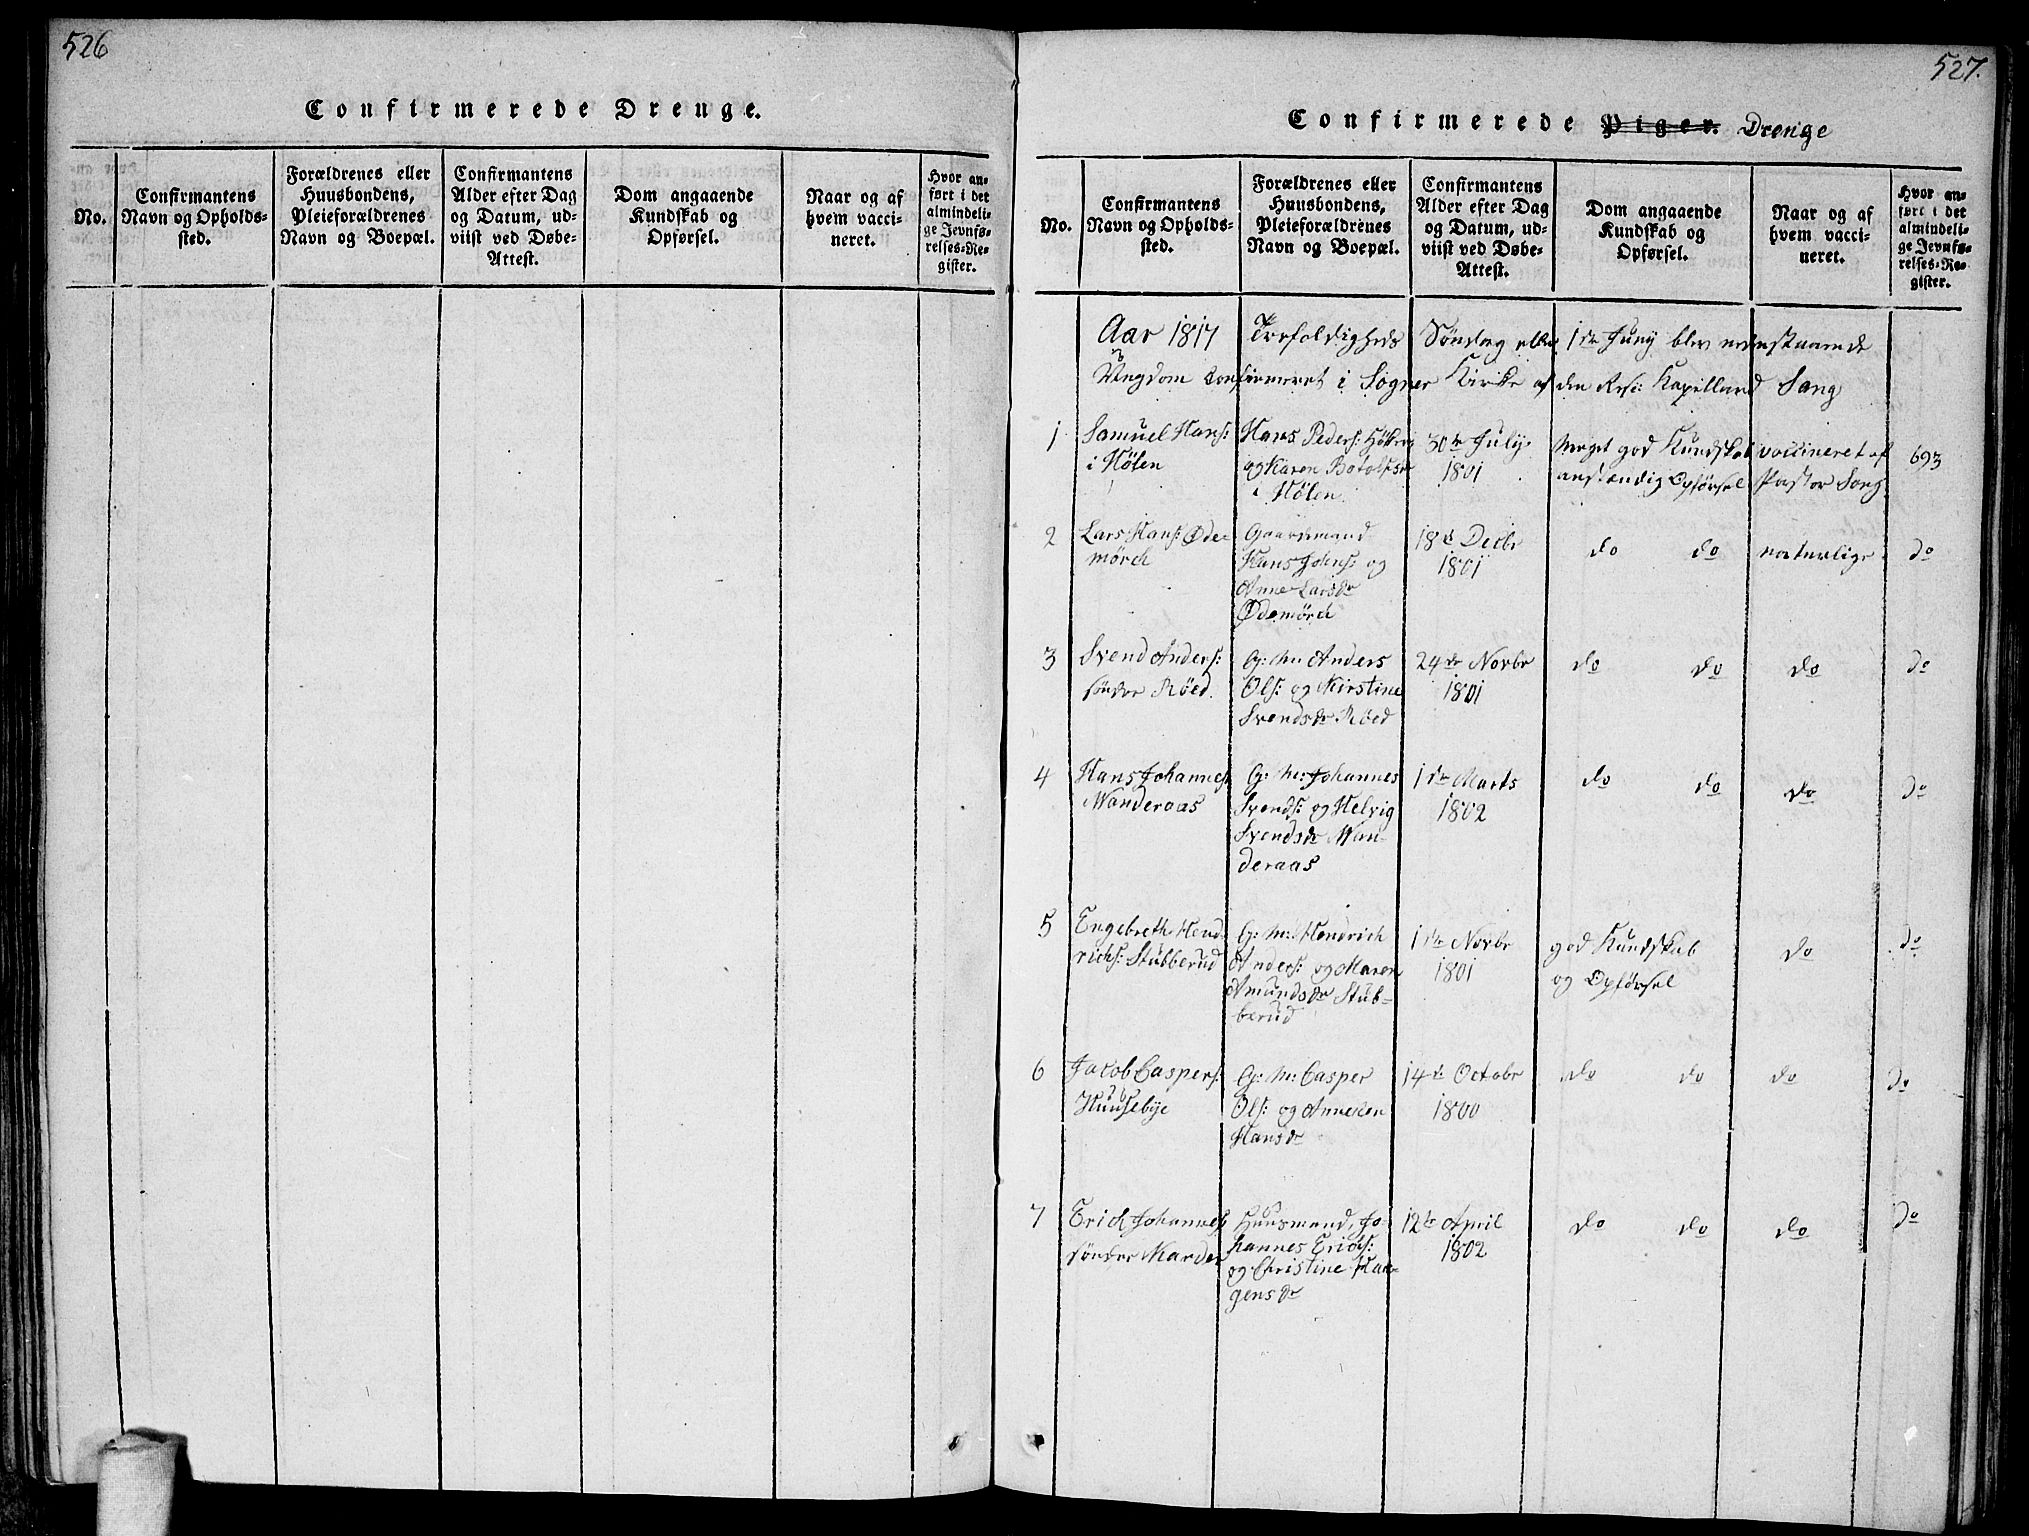 526
Confirmerede Drenge.
No.
Confirmantens
Navn og Opholds-
sted.
Forældrenes eller
Huusbondens,
Pleieforældrenes
Navn og Boepæl.
Confirmantens
Alder efter Dag
og Datum, ud-
viist ved Døbe-
Attest.
Dom angaaende
Kundskab og
Opførsel.
Naar og af
hvem vacci-
neret.
Hvor an-
ført i det
almindeli-
ge Jevnfø-
relses-Re-
gister.
527.
Confirmerede Piger. Drenge
No.
Confirmantens
Navn og Opholds-
sted.
Forældrenes eller
Huusbondens,
Pleieforældrenes
Navn og Boepæl.
Confirmantens
Alder efter Dag
og Datum, ud-
viist ved Døbe-
Attest.
Dom angaaende
Kundskab og
Opførsel.
Naar og af
hvem vacci-
neret.
Hvor an-
ført i det
almindeli-
ge Jevnfø-
relses-Re-
gister.
Aar 1817 Trefoldigheds Søndag eller 1de Juny blev nedenstaaende
Ungdom confirmeret i Sogner Kirke af den Resi: Kapelland Sang
1
Samuel Hans:
i Hølen
Hans Peders:
og Karen Botolfsdr
i Hølen
30te July
1801
Meget god Kundskab
anstændig Opførsel
vaccineret af
Pastor Sang
693
2
Lars Hans: Øde-
mörch
Gaardmand
Hans Johns: og
Anne Larsdr
Ødemörch
18de Decbr
1801
do do
naturlige
do
3
Svend Anders:
søndre Röed.
G: M: Anders
Ols: og Kirstine
Svendsdr Röed
24de Novbr
1801
do do
do
do
4
Hans Johannes:
Wanderaas
G: M: Johannes
Svends: og Helvig
Svendsdr Wan-
deraas
1de Marts
1802
do do
do
do
5
Engebreth Hend-
richs: Stubberud
G: M: Hendrich
Anders: og Maren
Amundsdr Stub-
berud
1de Novbr
1801
god Kundskab
og Opførsel
do
do
6
Jacob Caspers:
Huusebye
G: M: Casper
Ols: og Anneken
Hansdr
14de Octobr
1800
do do
do
do
7
Erich Johannes:
søndre Marder
Huusmand, Jo-
hannes Erichs:
og Christine Haa-
gensdr
12te April
1802
do do
do
do